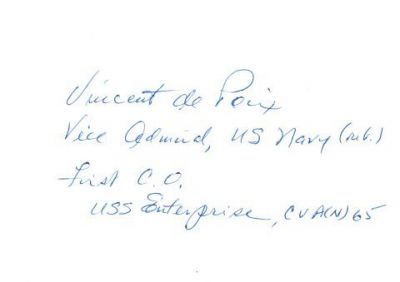 Vincent de Poix
Vice Admiral, US Navy (ret.)
First C.O.
USS Enterprise, CVA(N)65